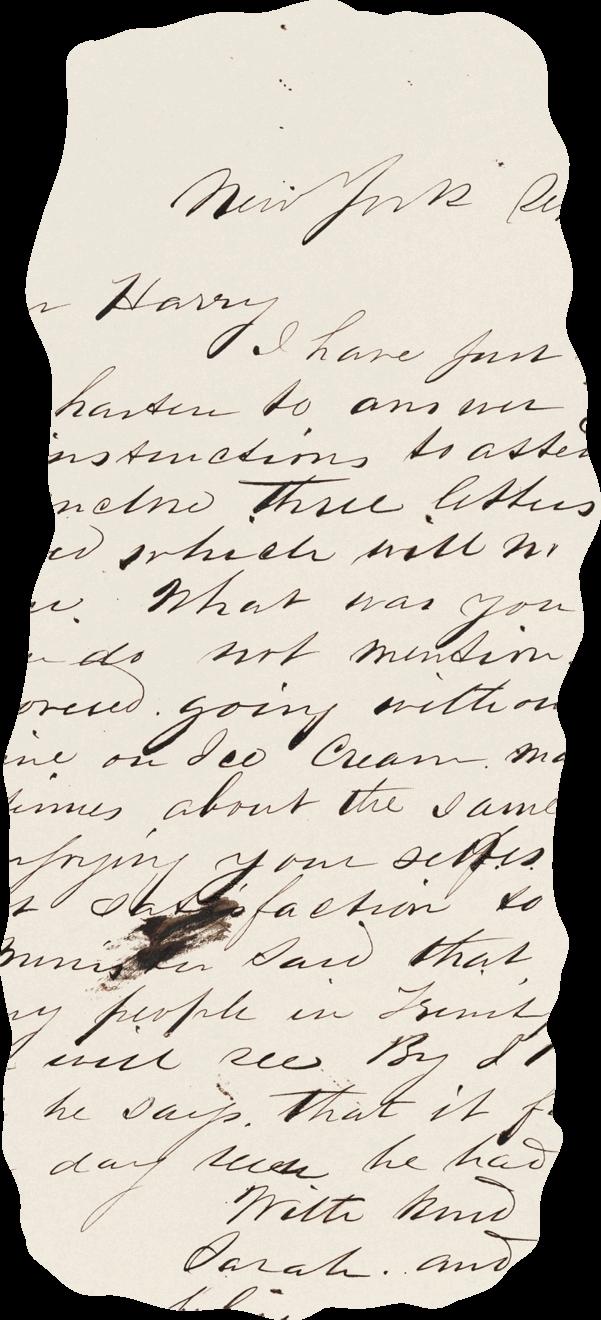 New York
Harry
I have just
hasten to answer
instructions to
three letters
which will
What was you
do not mention
going
on Ice Cream.
times about the same
your selfes
satisfaction to
Minister said that
people in Trinity
will see By
he says. that it
day he had
With kind
Sarah. and